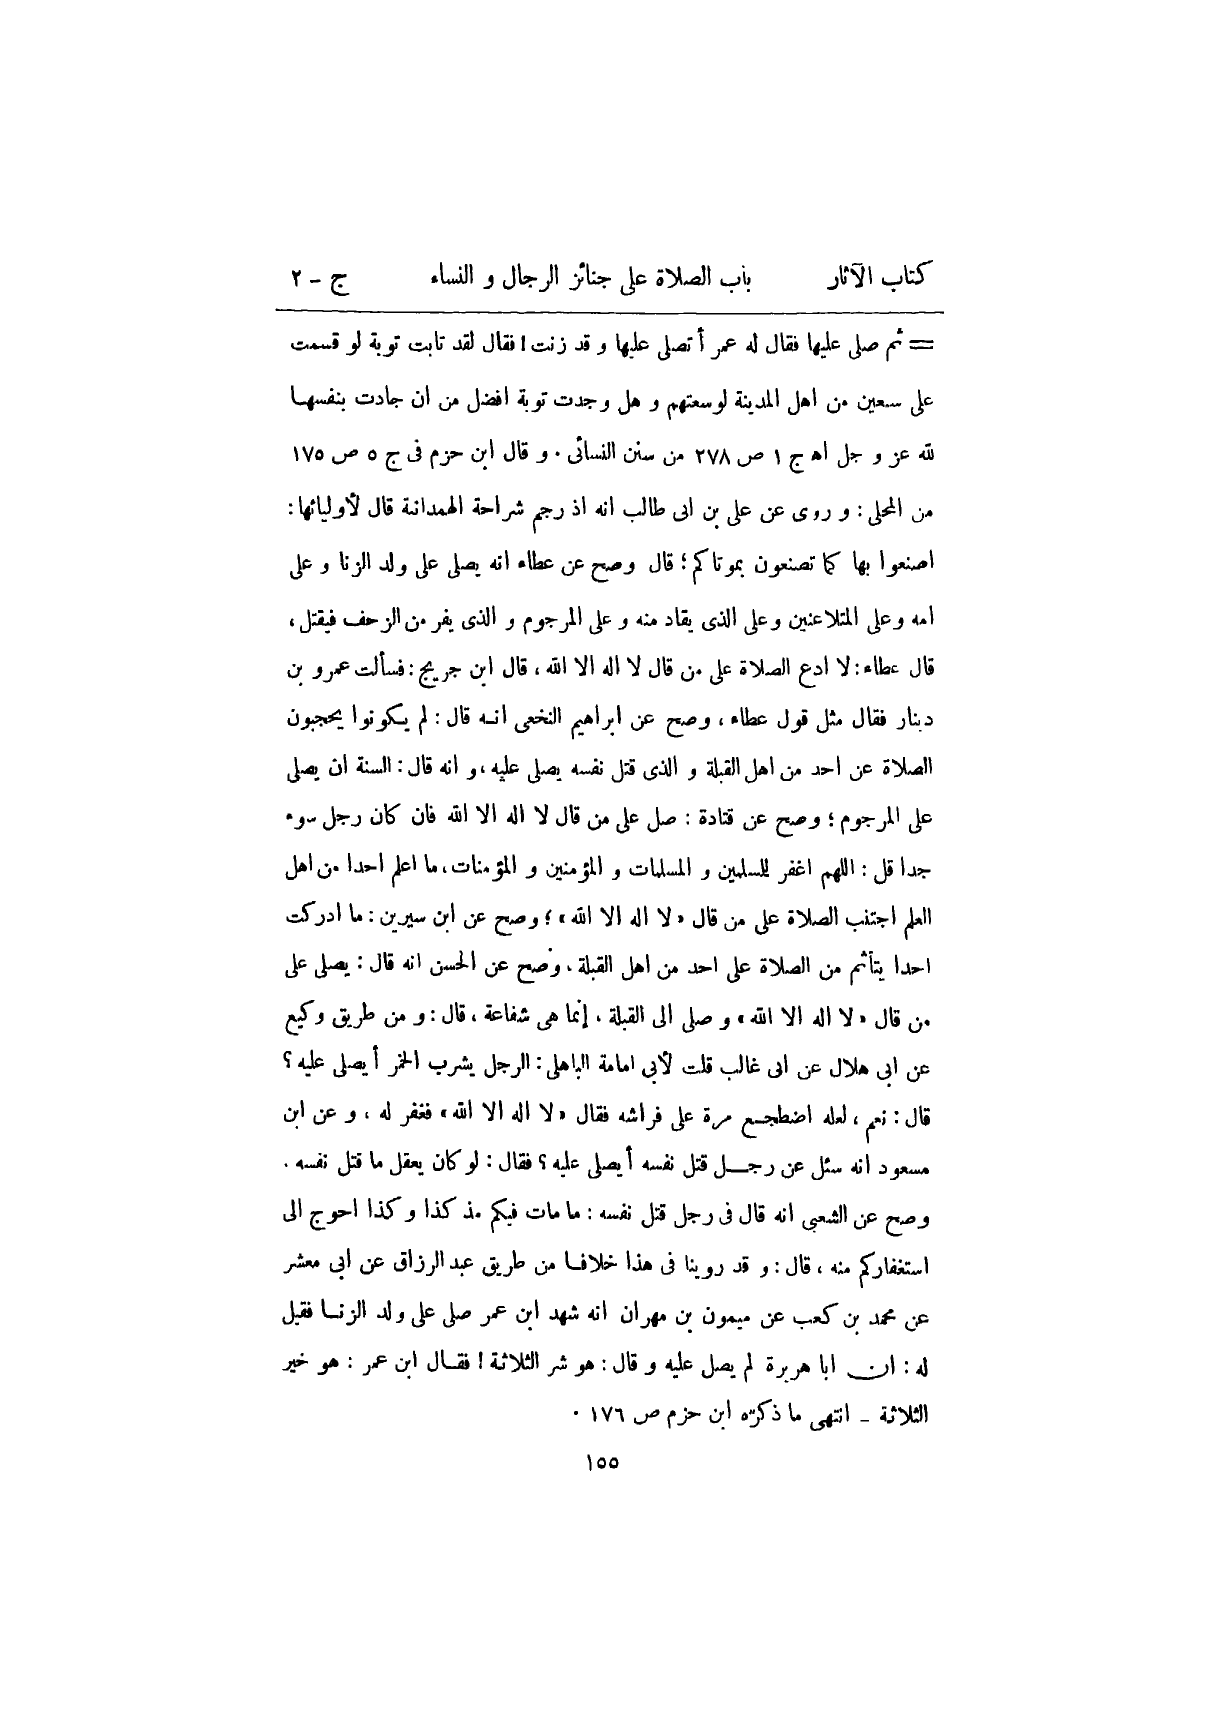 كتاب الآثار باب الصلاة على جنائز الرجال و النساء ج - ٢
= ثم صلى عليها فقال له عمر أ تصلى عليها و قد زنت! فقال لقد تابت توبة لو قسمت
على سبعين من اهل المدينة لوسعتهم و هل وجدت توبة افضل من ان جادت بنفسها
لله عز و جل اه ج ١ ص ٢٧٨ من سنن النسائى . و قال ابن حزم فى ج ٥ ص ١٧٥
من المحلى : و روى عن على بن ابى طالب انه اذ رجم شراحة الهمدانة قال لأوليائها :
اصنعوا بها كما تصنعون بموتاكم ؛ قال وصح عن عطاء انه يصلى على ولد الزنا و على
امه وعلى المتلاعنين وعلى الذى يقاد منه و على المرجوم و الذى يفر من الزحف فيقتل ،
قال عطاء : لا ادع الصلاة على من قال لا اله الا الله ، قال ابن جريج : فسألت عمرو بن
دينار فقال مثل قول عطاء ، وصح عن ابراهيم النخعى انه قال : لم يكونوا يحجبون
الصلاة عن احد من اهل القبلة و الذى قتل نفسه يصلى عليه ، و انه قال : السنة ان يصلى
على المرجوم ؛ وصح عن قتادة : صل على من قال لا اله الا الله فان كان رجل سوء
جدا قل : اللهم اغفر للمسلمين و المسلمات و المؤمنين و المؤمنات ، ما اعلم احدا من اهل
العلم اجتنب الصلاة على من قال « لا اله الا الله » ؛ وصح عن ابن سيرين : ما ادركت
احدا يتأثم من الصلاة على احد من اهل القبلة ، وصح عن الحسن انه قال : يصلى على
من قال « لا اله الا الله » و صلى الى القبلة ، إنما هى شفاعة ، قال : و من طريق وكيع
عن ابى هلال عن ابى غالب قلت لأبى امامة الباهلى : الرجل يشرب الخمر أ يصلى عليه ؟
قال : نعم ، لعله اضطجع مرة على فراشه فقال « لا اله الا الله » فغفر له ، و عن ابن
مسعود انه سئل عن رجل قتل نفسه أ يصلى عليه ؟ فقال : لو كان يعقل ما قتل نفسه .
وصح عن الشعبى انه قال فى رجل قتل نفسه : ما مات فيكم مذ كذا و كذا احوج الى
استغفاركم منه ، قال : و قد روينا فى هذا خلافا من طريق عبد الرزاق عن ابى معشر
عن محمد بن كعب عن ميمون بن مهران انه شهد ابن عمر صلى على ولد الزنا فقيل
له : ان ابا هريرة لم يصل عليه و قال : هو شر الثلاثة ! فقال ابن عمر : هو خير
الثلاثة - انتهى ما ذكره ابن حزم ص ١٧٦ .
١٥٥